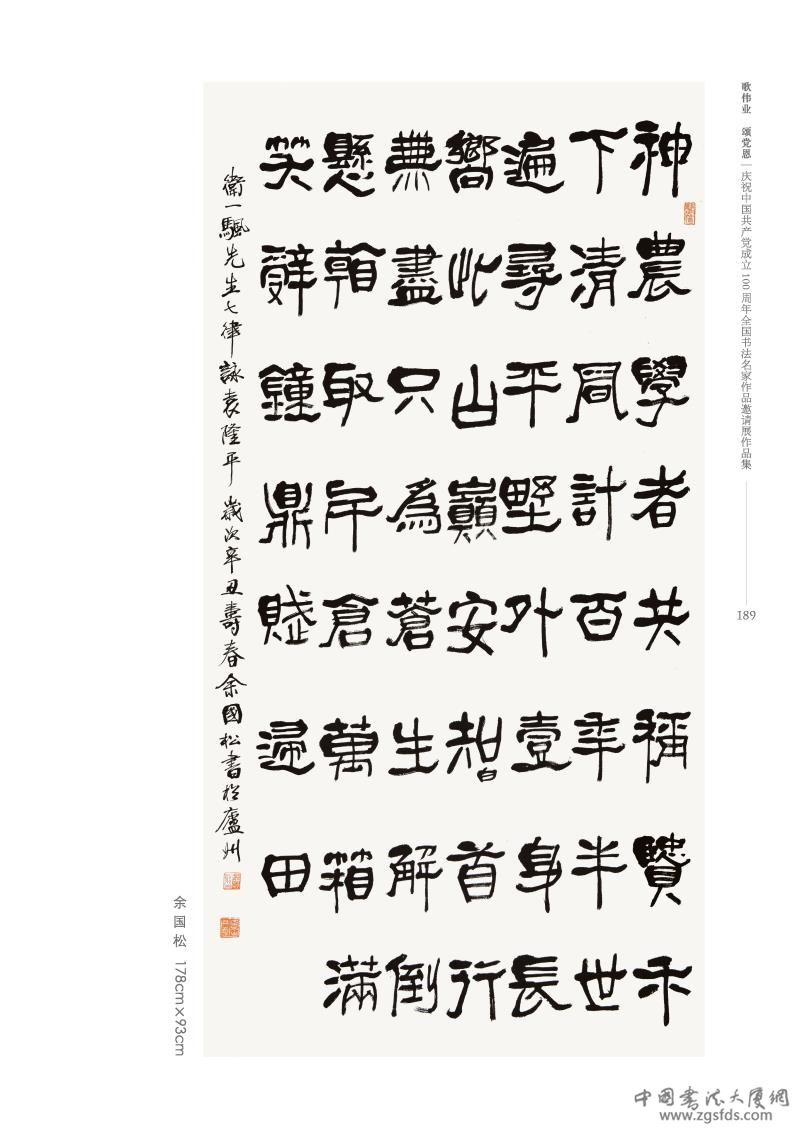 歌伟业 颂党恩 | 庆祝中国共产党成立100周年全国书法名家作品邀请展作品集
189
神農學者共稱賢禾
下清風計百年半世
遍尋平墅外壹身長
嚮此山巔安知白首行
無盡只為蒼生解倒
懸取千倉萬箱滿
笑辭鐘鼎賦歸田
衛一飄先生七律詠袁隆平 歲次辛丑壽春余國松書於廬州
余国松 178cm×93cm
中国书法大厦網
www.zgsfds.com